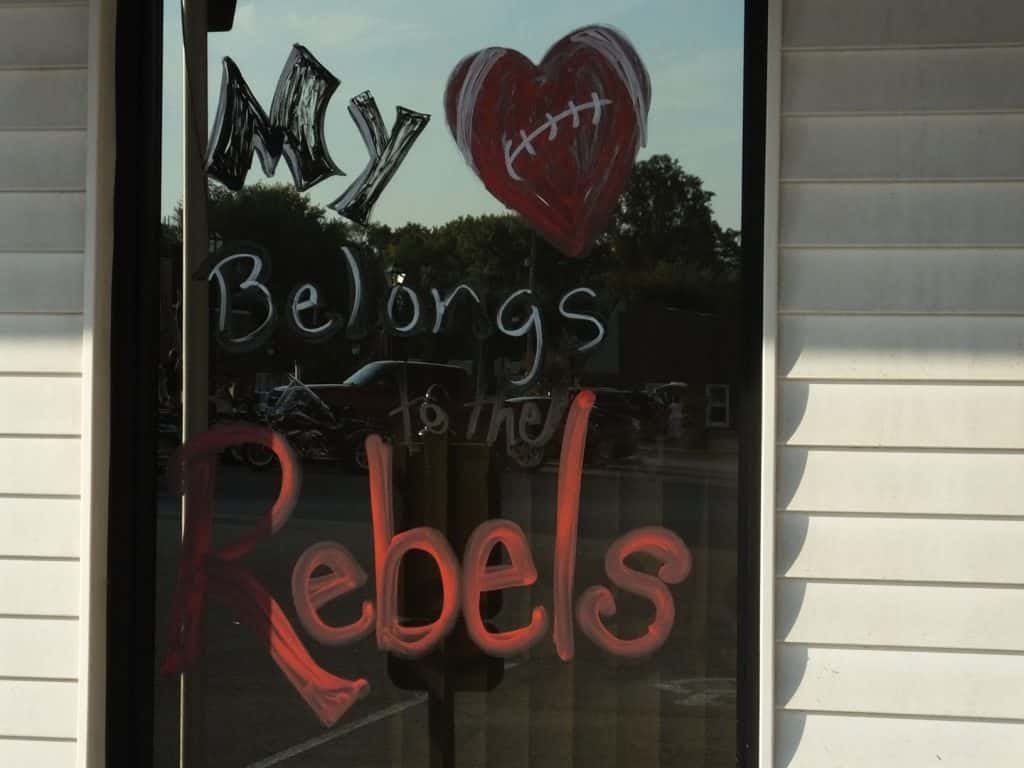 My
Belongs
to the
Rebels